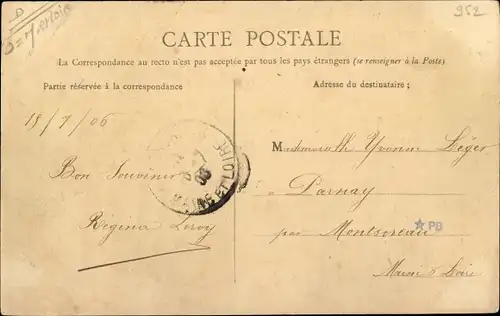 D
D = M et Loir
952
CARTE POSTALE
La Correspondance au recto n'est pas acceptée par tous les pays étrangers (se renseigner à la Poste)
Partie réservée à la correspondance
Adresse du destinataire ;
18/7/06
Bon Souvenir
Régina Leroy
MAINE ET LOIRE
06
Mademoiselle Yvonne Léger
à Parnay
par Montsoreau
PB
Maine & Loire